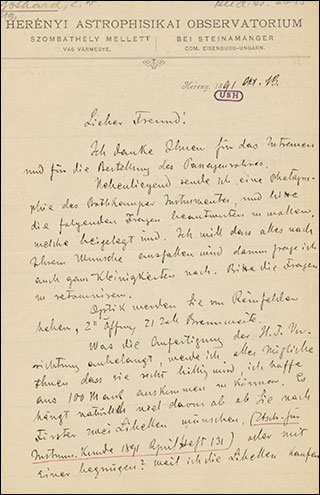 HERÉNYI ASTROPHISIKAI OBSERVATORIUM
SZOMBATHELY MELLETT
VAS VÁRMEGYE.
BEI STEINAMANGER
COM. EISENBURG-UNGARN.
Herény, 1891 Okt. 13.
UBH
Lieber Freund!
Ich danke Ihnen für das
und für die Bestellung des Passagenrohres.
Nebenliegend sende ich eine Photogra-
phie des Bothkamper Instrumentes, und bitte
die folgenden Fragen beantworten zu wollen,
welche beigelegt sind. Ich will dass alles nach
Ihrem Wunsche ausfallen und darum frage ich
auch ganz Kleinigkeiten nach. Bitte die Fragen
zu retournieren.
Optik werden Sie von Reinfelder
haben, 2" Öffnung 21 Zoll Brennweite.
Was die Anfertigung der H. T. Vor-
richtung anbelangt, werde ich alles Mögliche
thuen dass sie recht billig wird, ich hoffe
aus 100 Mark auskommen zu können. Es
hängt natürlich viel davon ab ob Sie nach
Förster zwei Libellen wünschen, (Ztschr. für
Instrum. Kunde 1891 April Heft 131) oder mit
einer begnügen? weil ich die Libellen kaufen